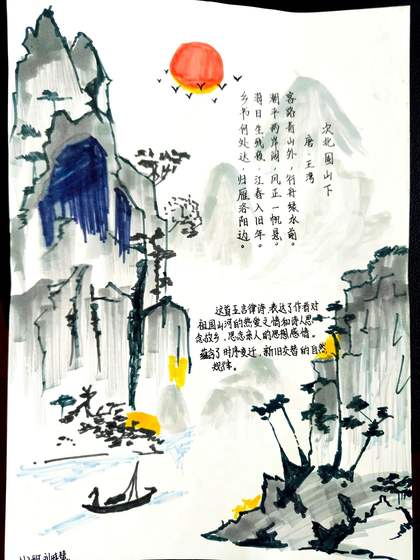 次北固山下
唐·王湾
客路青山外，行舟绿水前。
潮平两岸阔，风正一帆悬。
海日生残夜，江春入旧年。
乡书何处达，归雁洛阳边。
这首五言律诗，表达了作者对
祖国山河的热爱之情和诗人思
念故乡，思念亲人的思想感情。
蕴含了时序变迁，新旧交替的自然
规律。